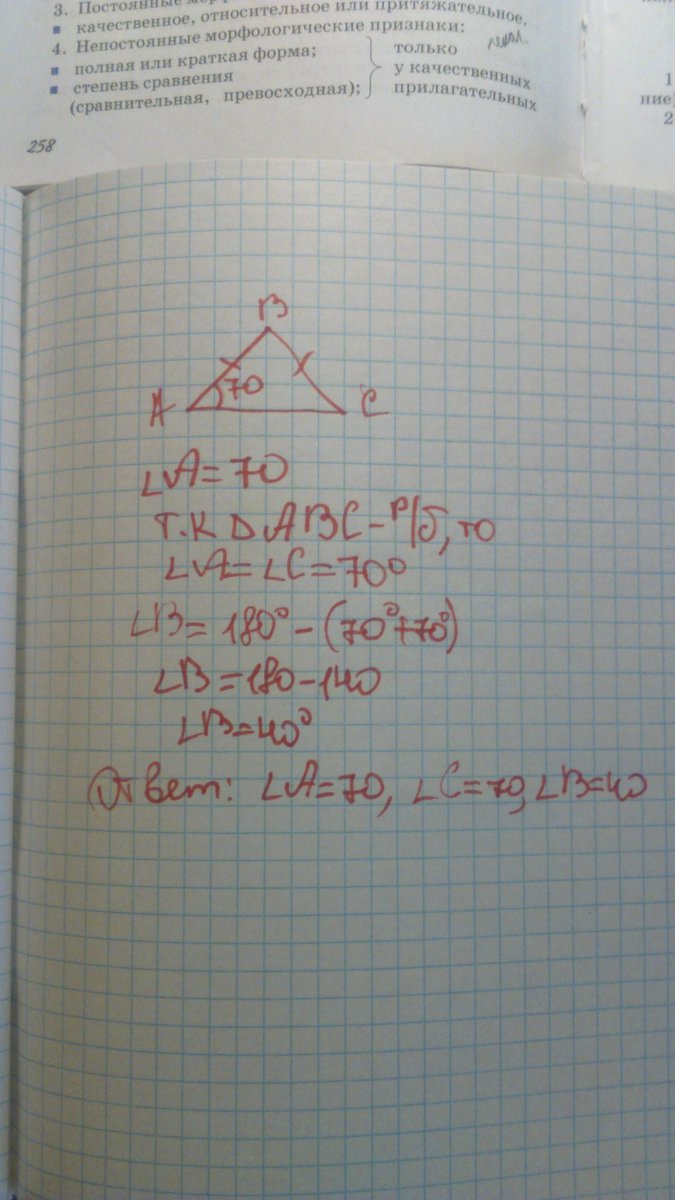 3. Постоянные
▪ качественное, относительное или притяжательное.
4. Непостоянные морфологические признаки:
▪ полная или краткая форма;
▪ степень сравнения
(сравнительная, превосходная);
только
у качественных
прилагательных
258
1
ние)
2
B
A 70 C
∠A = 70
Т.К △ ABC – р/б, то
∠A = ∠C = 70°
∠B = 180° – (70°+70°)
∠B = 180 – 140
∠B = 40°
Ответ: ∠A = 70, ∠C = 70, ∠B = 40